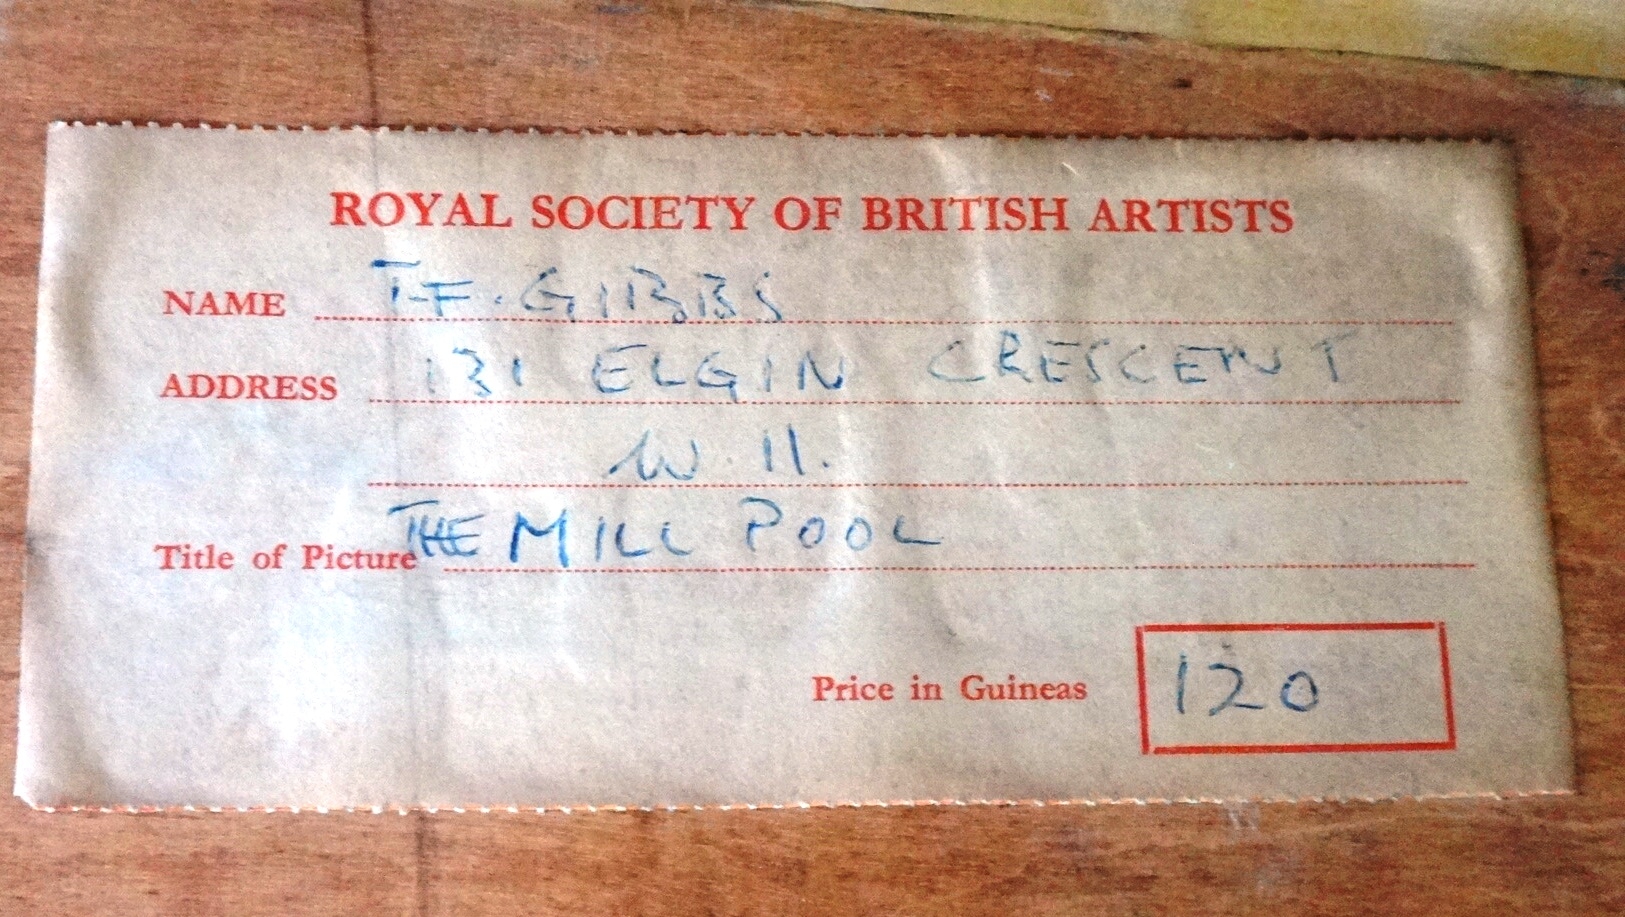 ROYAL SOCIETY OF BRITISH ARTISTS
NAME T.F. GIBBS
ADDRESS 131 ELGIN CRESCENT
W. 11.
Title of Picture THE MILL POOL
Price in Guineas 120